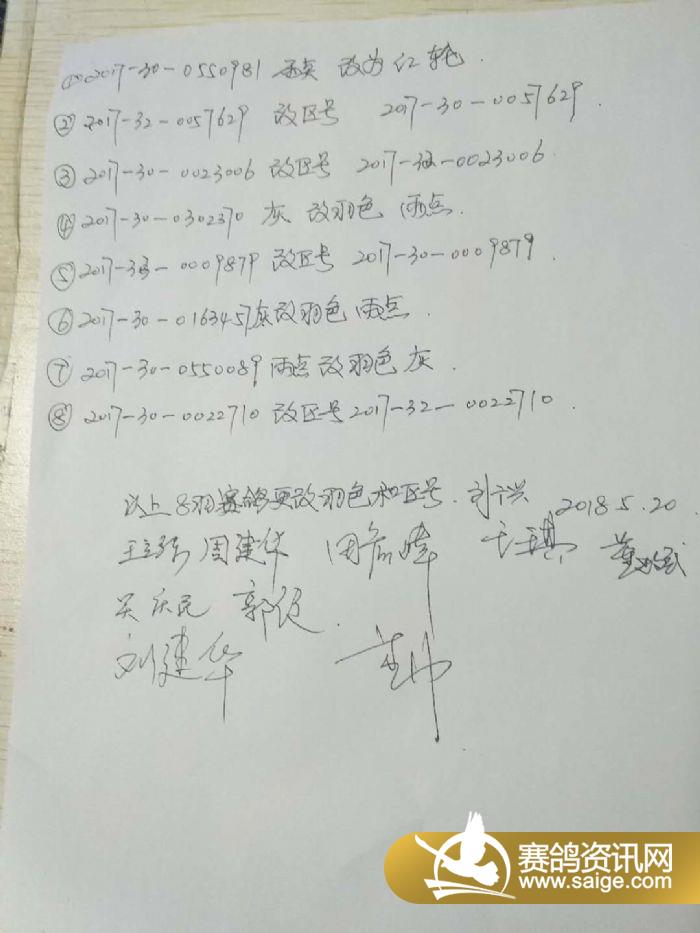 ① 2017-30-0550981 改为红轮.
② 2017-32-0057629 改区号 2017-30-0057629.
③ 2017-30-0023006 改区号 2017-32-0023006.
④ 2017-30-0302370 灰 改羽色 雨点.
⑤ 2017-33-0009879 改区号 2017-30-0009879.
⑥ 2017-30-0163457 灰改羽色 雨点.
⑦ 2017-30-0550089 雨点改羽色 灰.
⑧ 2017-30-0022710 改区号 2017-32-0022710.
以上8羽赛鸽更改羽色和区号. 2018.5.20
周建华
吴庆民 郭
刘建华
赛鸽资讯网
www.saige.com